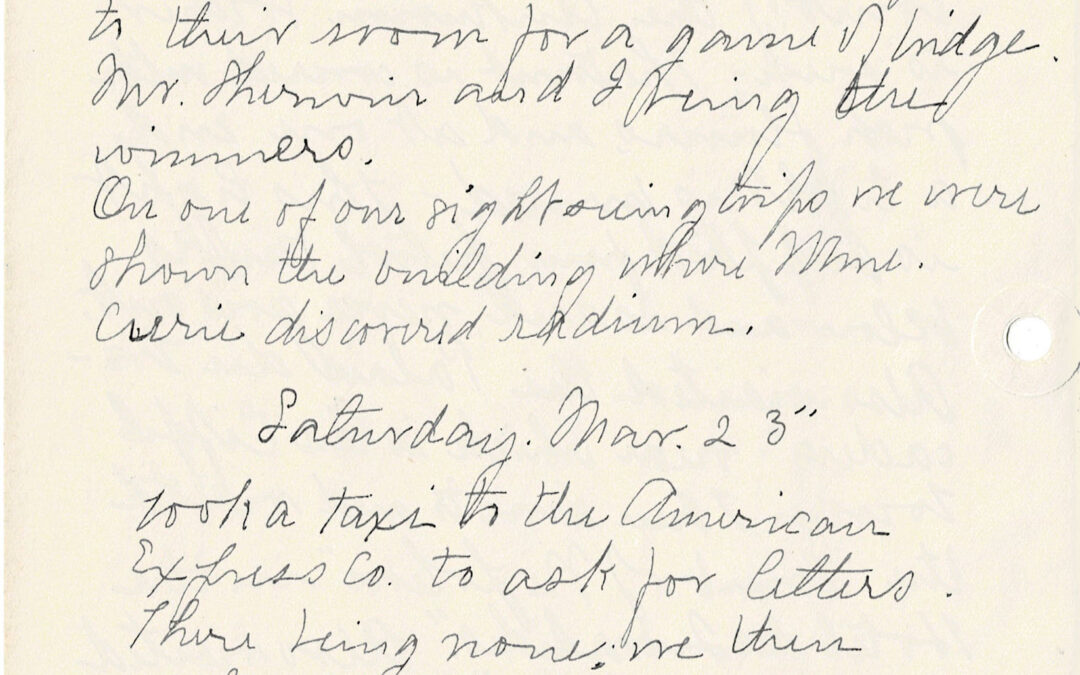 to their room for a game of bridge.
Mr. and I being the
winners.
On one of our sightseeing trips we were
shown the building where Mme.
Currie discovered radium.
Saturday. Mar. 23"
took a taxi to the American
Express Co. to ask for letters.
There being none, we then